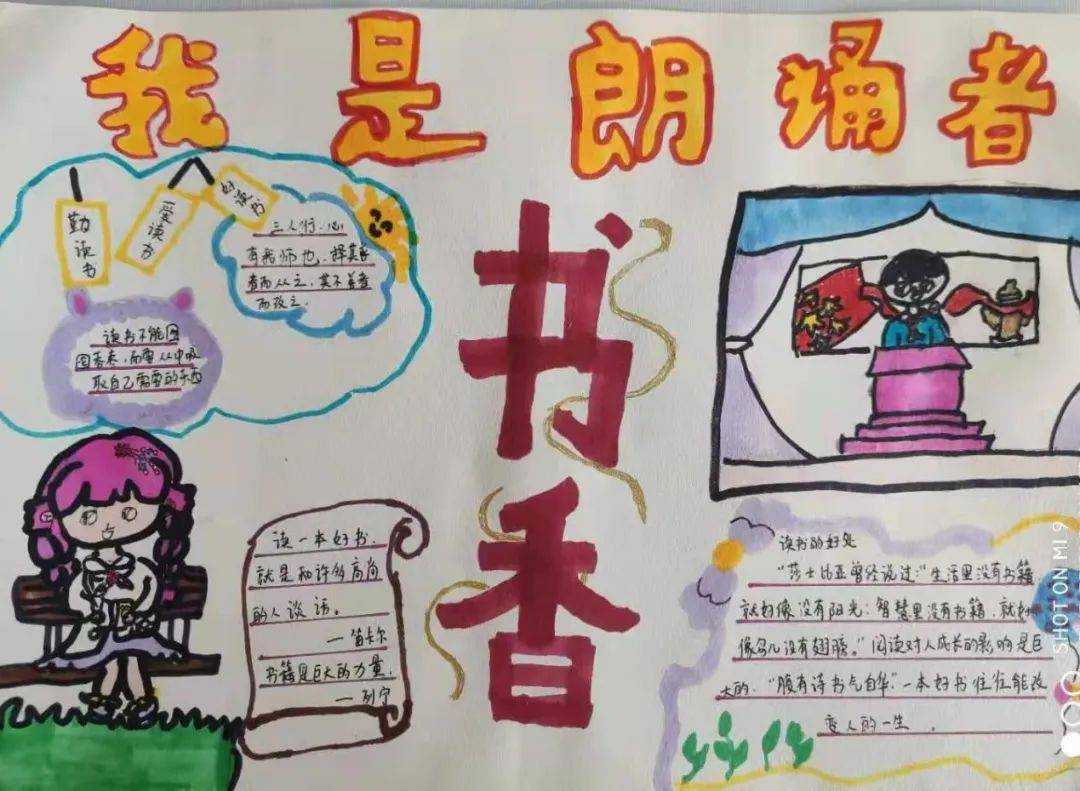 我是朗诵者
勤读书
爱读书
好读书
三人行,必
有我师也,择其善
者而从之,其不善者
而改之.
读书不能囫
囵吞枣,而要从中吸
取自己需要的东西
书香
读一本好书,
就是和许多高尚
的人谈话。
—笛卡尔
书籍是巨大的力量.
—列宁
读书的好处
"莎士比亚曾经说过:"生活里没有书籍
就好像没有阳光;智慧里没有书籍,就好
像鸟儿没有翅膀。"阅读对人成长的影响是巨
大的,"腹有诗书气自华"一本好书往往能改
变人的一生.
SHOT ON MI 9